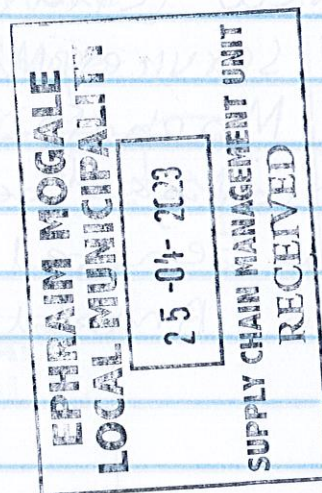 EPHRAIM MOGALE
LOCAL MUNICIPALITY
25 -04- 2023
SUPPLY CHAIN MANAGEMENT UNIT
RECEIVED